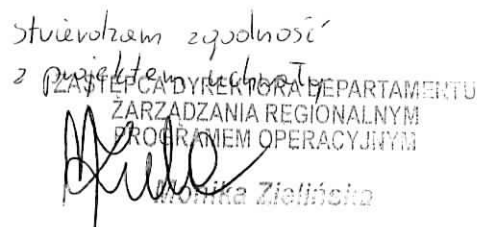 stwierdzam zgodność
z projektem uchwały
ZASTĘPCA DYREKTORA DEPARTAMENTU
ZARZĄDZANIA REGIONALNYM
PROGRAMEM OPERACYJNYM
Monika Zielińska